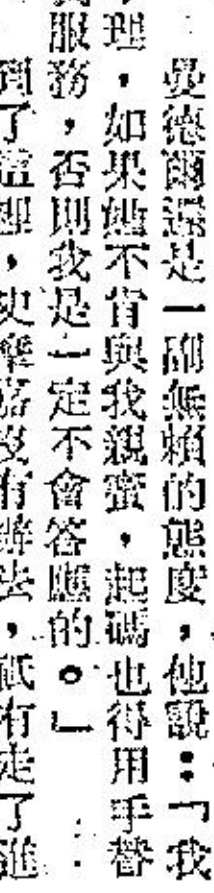 曼德爾還是一副無賴的態度，他說：「我
理，如果她不肯與我親蜜，起碼也得用手替
服務，否則我是一定不會答應的。」
到了這裡，史嘉沒有辦法，祇有走了進